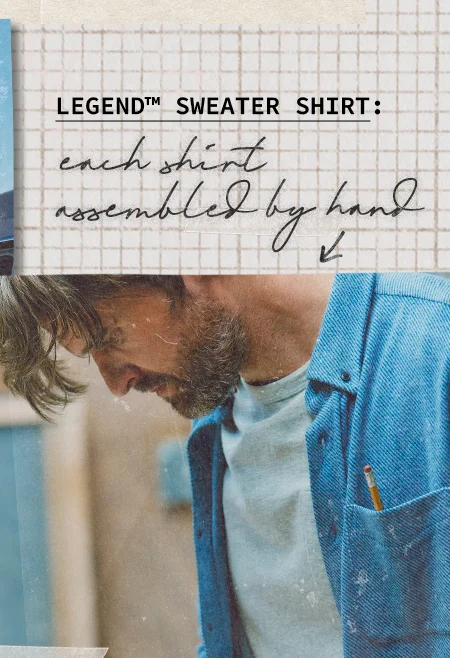 LEGEND™ SWEATER SHIRT:
each shirt
assembled by hand